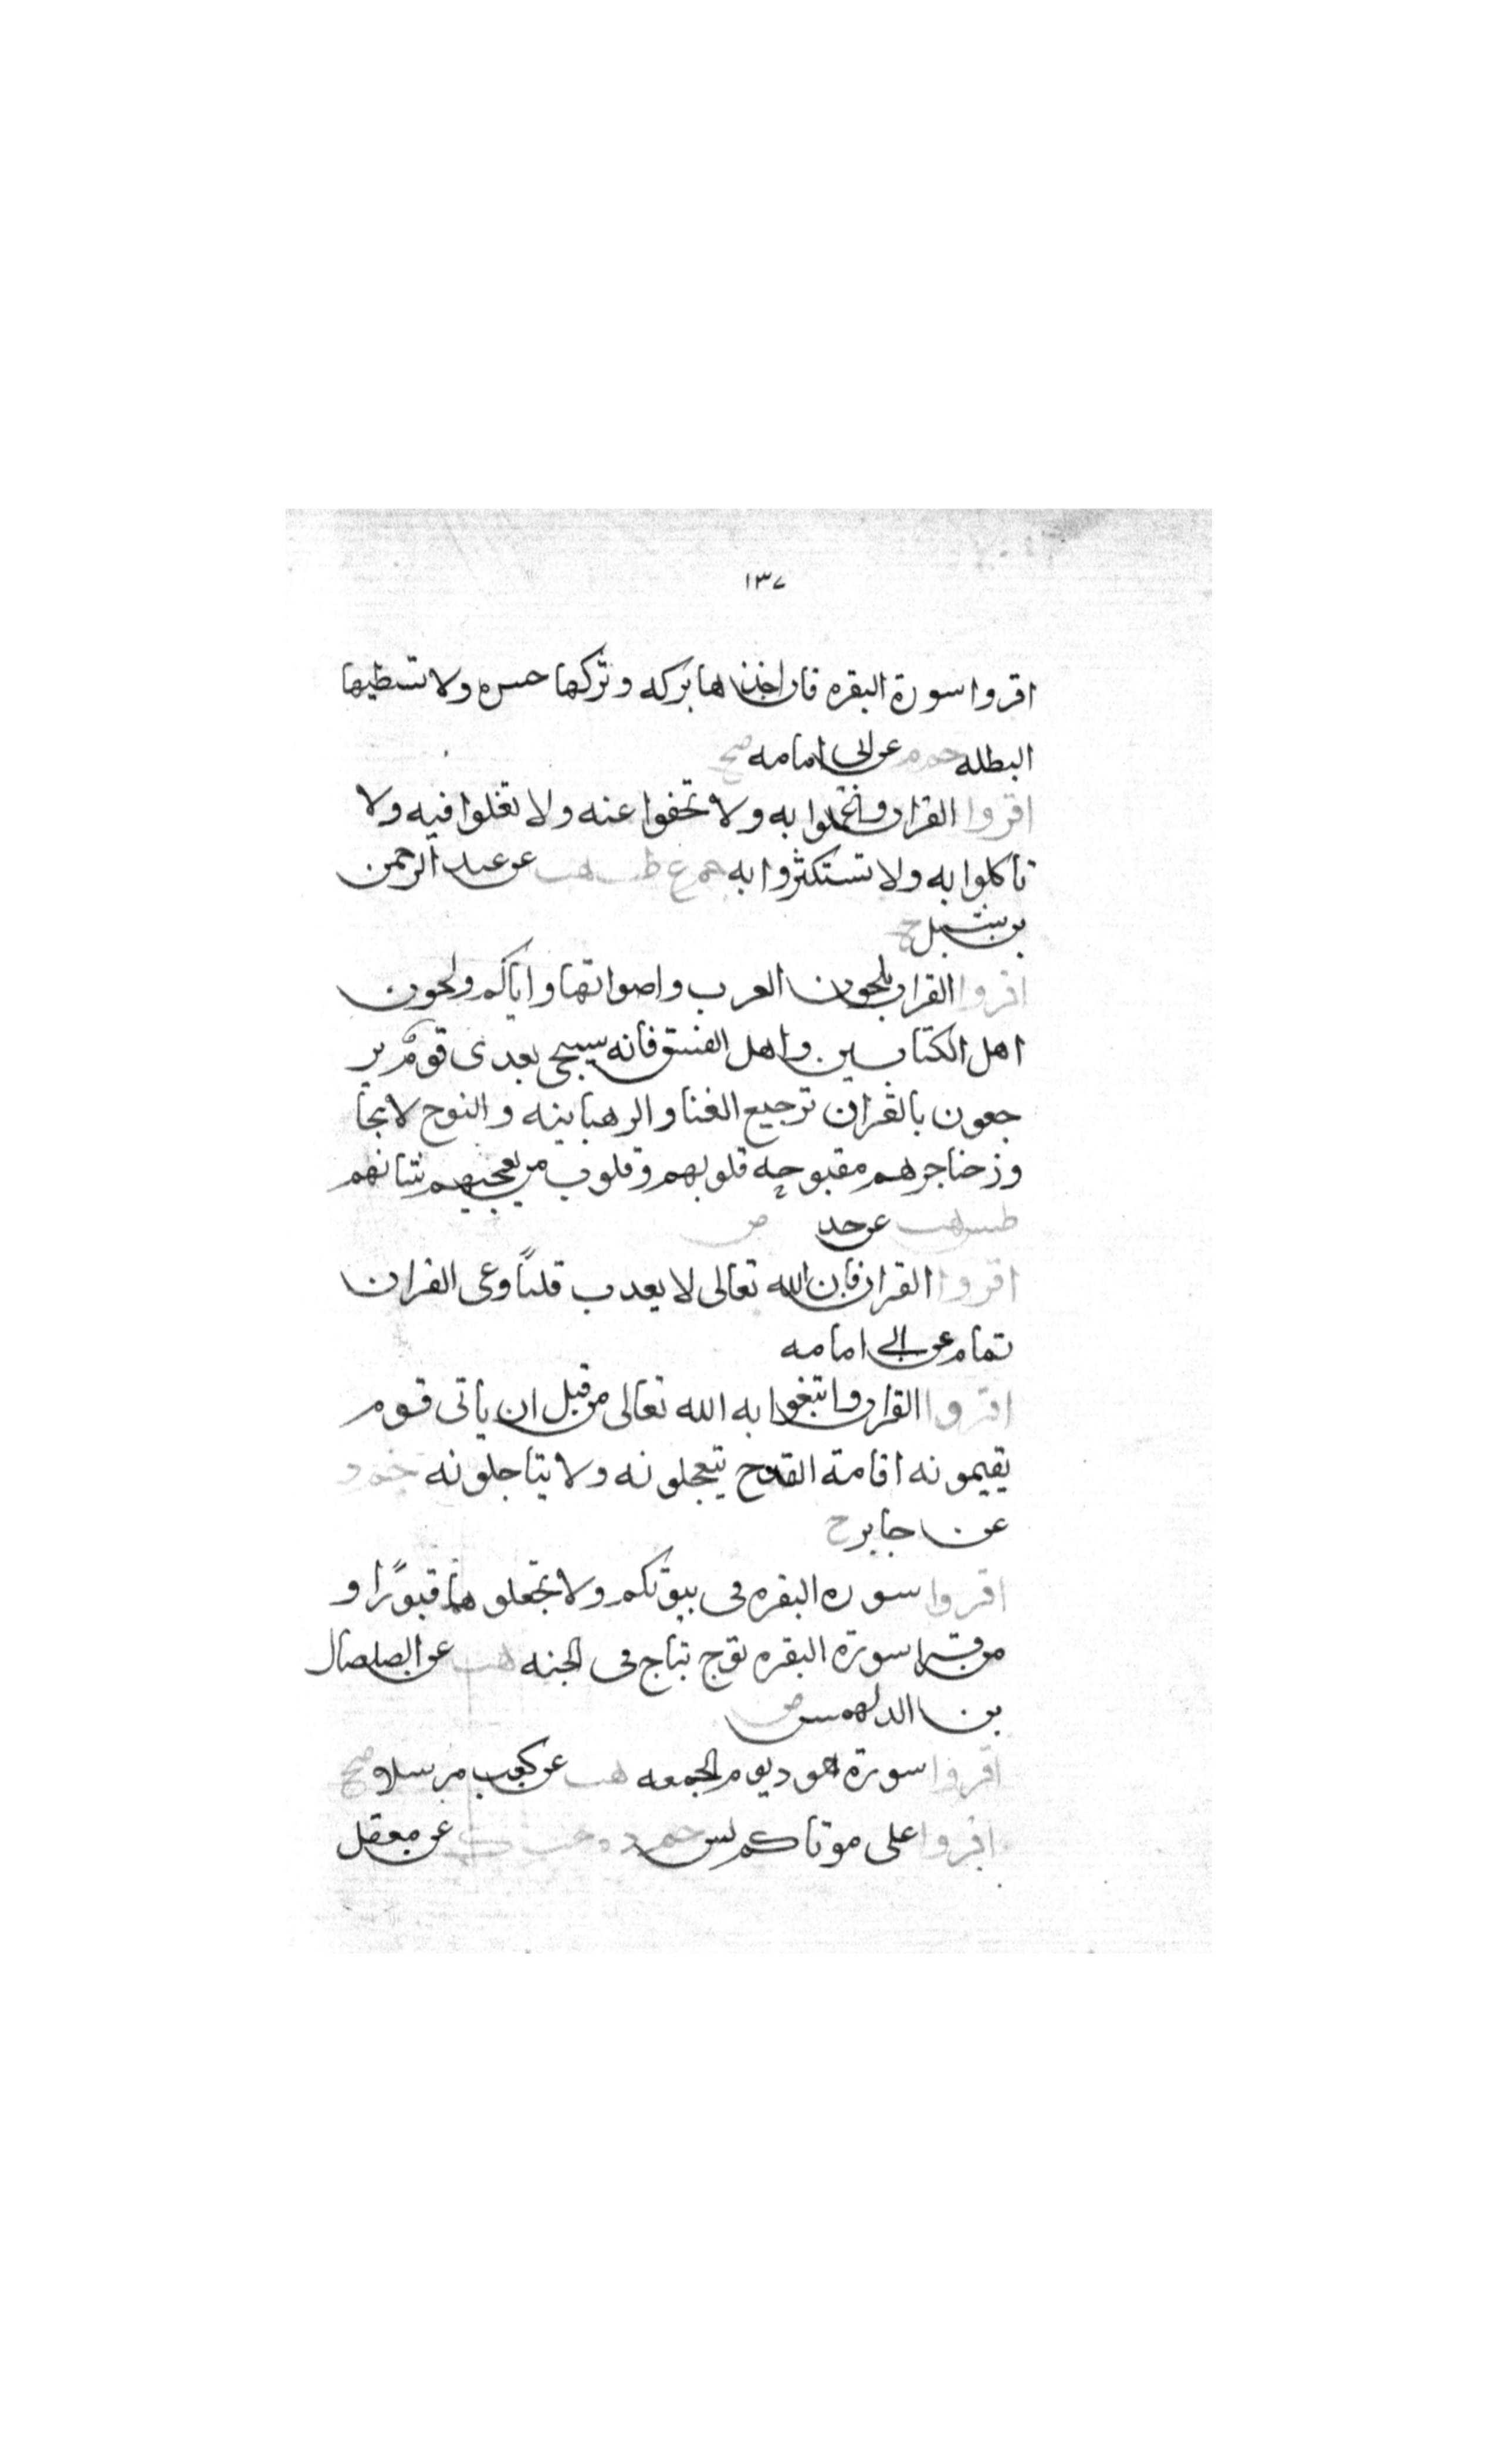 ١٣٧
اقروا سورة البقره فان اخذها بركه وتركها حسره ولا تسطيعها
البطله حم م عن ابى امامه صح
اقروا القران واعملوا به ولا تجفوا عنه ولا تغلوا فيه ولا
تاكلوا به ولا تستكثروا به حم ع طب هب عن عبد الرحمن
بن شبل ح
اقروا القران بلحون العرب واصواتها واياكم ولحون
اهل الكتابين واهل الفسق فانه سيجى بعدى قوم ير
جعون بالقران ترجيع الغنا والرهبانيه والنوح لا يجا
وز حناجرهم مفتونه قلوبهم وقلوب من يعجبهم شانهم
طس هب عن حد ض
اقروا القران فان الله تعالى لا يعدب قلبًا وعى القران
تمام عن ابى امامه
اقروا القران وابتغوا به الله تعالى من قبل ان ياتى قوم
يقيمونه اقامة القدح يتعجلونه ولا يتاجلونه حم د
عن جابر ح
اقروا سوره البقره فى بيوتكم ولا تجعلوها قبورًا و
من قرا سورة البقره توج بتاج فى الجنه هب عن الصلصال
بن الدلهمس ض
اقروا سورة هود يوم الجمعه هب عن كعب مرسلا صح
اقروا على موتاكم يس حم د ه حب ك عن معقل